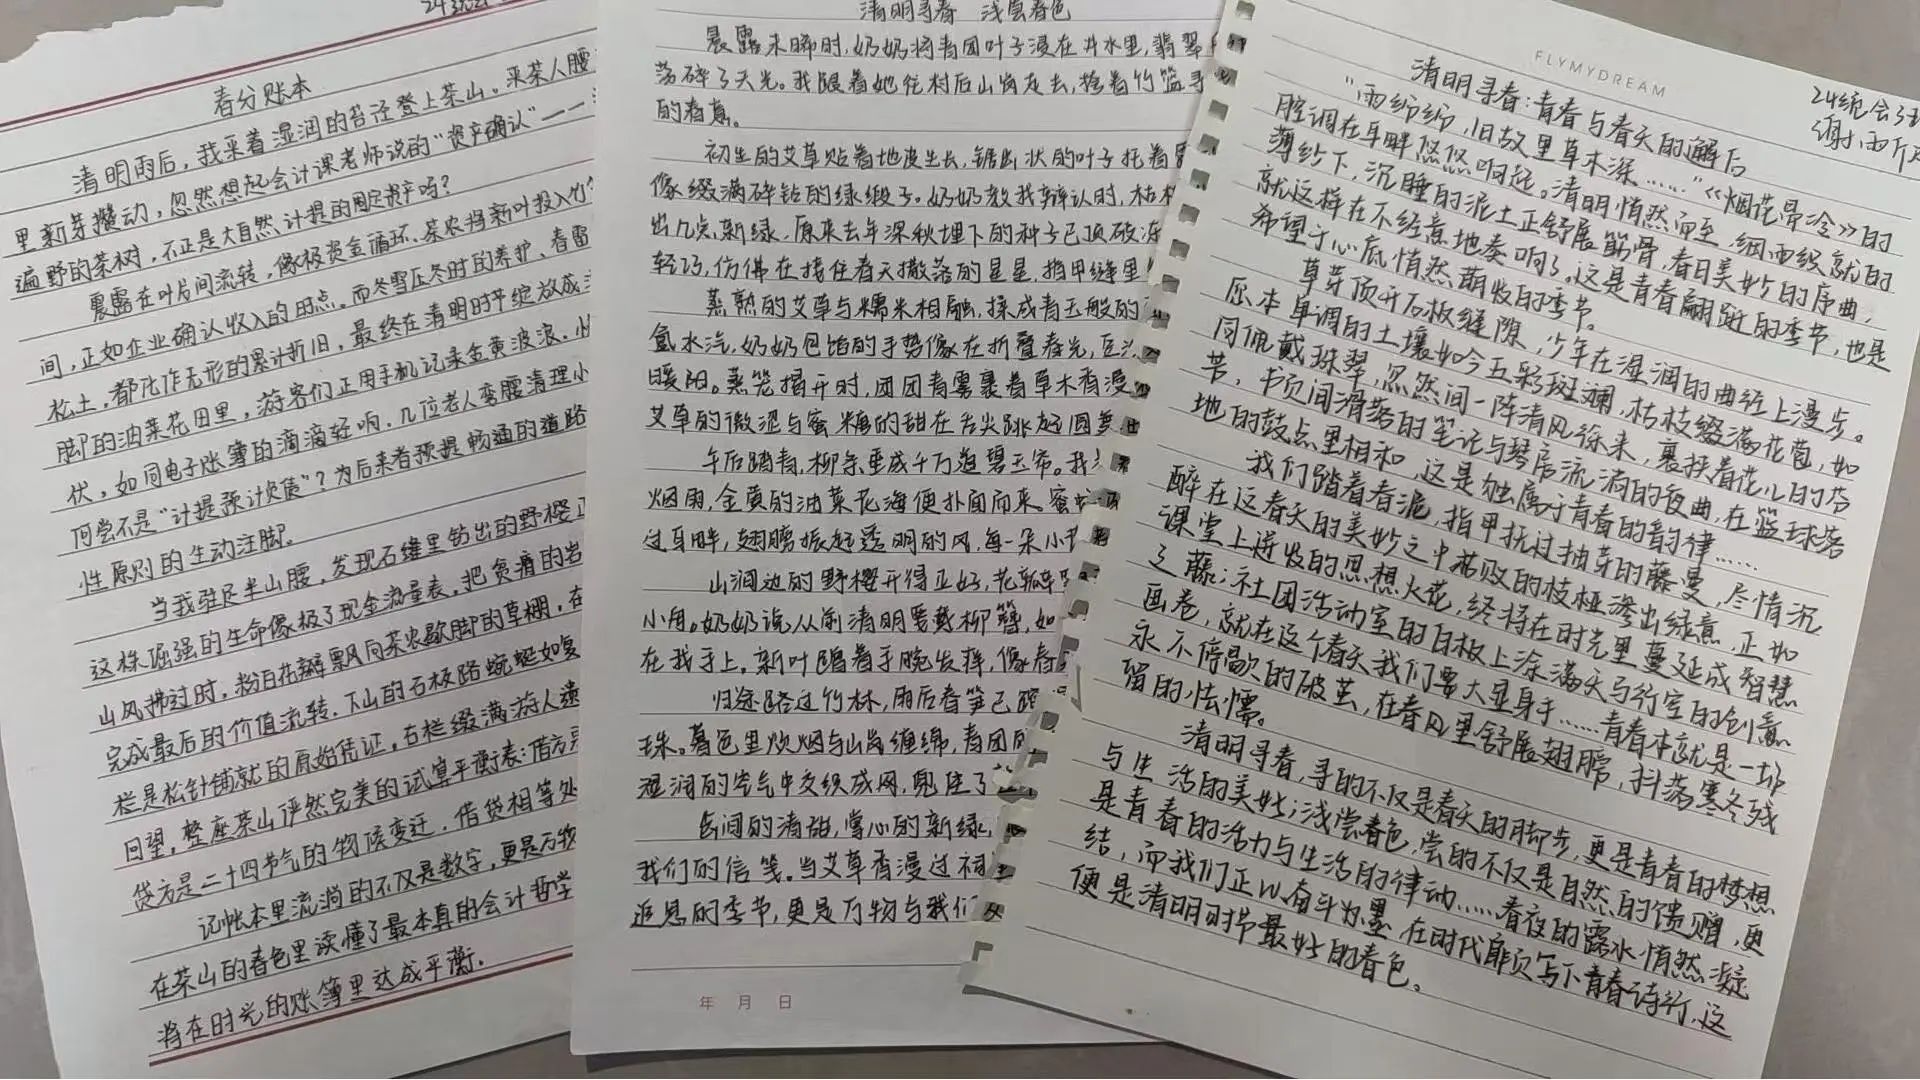 24统会
春分账本
清明雨后，我采着湿润的苔径登上茶山。采茶人腰
里新芽攒动，忽然想起会计课老师说的“资产确认”——
遍野的茶树，不正是大自然计提的固定资产吗？
晨露在叶片间流转，像极资金循环。茶农将新叶投入竹
间，正如企业确认收入的时点。而冬雪压冬时的养护、春雷
松土，都化作无形的累计折旧，最终在清明时节绽放成
脚的油菜花田里，游客们正用手机记录金黄波浪。
伏，如同电子账簿的滴滴轻响。几位老人弯腰清理小
何尝不是“计提预计负债”？为后来者预提畅通的道路
性原则的生动注脚。
当我驻足半山腰，发现石缝里钻出的野樱正
这株倔强的生命像极了现金流量表，把贫瘠的岩
山风拂过时，粉白花瓣飘向茶农歇脚的草棚，在
完成最后的价值流转。下山的石板路蜿蜒如复
栏是松针铺就的原始凭证，右栏缀满游人
回望，整座茶山俨然完美的试算平衡表：借方
贷方是二十四节气的物候变迁，借贷相等处
记帐本里流淌的不仅是数字，更是万物
在茶山的春色里读懂了最本真的会计哲学
将在时光的账簿里达成平衡。
清明寻春 浅尝春色
晨露未晞时，奶奶将青团叶子浸在井水里，翡翠
荡碎了天光。我跟着她往村后山岗走去，挎着竹篮寻
的春意。
初生的艾草贴着地皮生长，锯齿状的叶子托着
像缀满碎钻的绿缎子。奶奶教我辩认时，枯
出几点新绿，原来去年深秋埋下的种子已顶破冻
轻巧，仿佛在接住春天撒落的星星，指甲缝里
蒸熟的艾草与糯米相融，揉成青玉般的
氲水汽，奶奶包馅的手势像在折叠春光，豆沙
暖阳。蒸笼揭开时，团团青雾裹着草木香漫
艾草的微涩与蜜糖的甜在舌尖跳起圆舞曲
午后踏青，柳条垂成千万道碧玉帘。我
烟雨，金黄的油菜花海便扑面而来。蜜蜂
过身畔，翅膀振起透明的风，每一朵小
山涧边的野樱开得正好，花瓣
小舟。奶奶说从前清明要戴柳簪，如
在我手上。新叶随着手腕发择，像春
归途路过竹林，雨后春笋已
珠。暮色里炊烟与山岚缠绵，青团
湿润的空气中交织成网，兜住了
唇间的清甜，掌心的新绿，
我们的信笺。当艾草香漫过祠
追思的季节，更是万物与我们
年 月 日
FLYMYDREAM
24统会3班
谢雨
清明寻春：青春与春天的邂逅
“雨纷纷，旧故里草木深……”《烟花易冷》的
腔调在耳畔悠悠响起。清明悄然而至，细雨织就的
薄纱下，沉睡的泥土正舒展筋骨，春日美妙的序曲，
就这样在不经意地奏响了，这是青春翩跹的季节，也是
希望于心底悄然萌发的季节。
草芽顶开石板缝隙，少年在湿润的曲径上漫步。
原本单调的土壤如今五彩斑斓，枯枝缀满花苞，如
同佩戴珠翠，忽然间一阵清风徐来，裹挟着花儿的芬
芳，书页间滑落的笔记与琴房流淌的夜曲，在篮球落
地的鼓点里相和，这是独属于青春的韵律……
我们踏着春泥，指甲抚过抽芽的藤蔓，尽情沉
醉在这春天的美妙之中枯败的枝桠渗出绿意，正如
课堂上迸发的思想火花，终将在时光里蔓延成智慧
之藤；社团活动室的白板上涂满天马行空的创意
画卷，就在这个春天我们要大显身手……青春本就是一场
永不停歇的破茧，在春风里舒展翅膀，抖落寒冬残
留的怯懦。
清明寻春，寻的不仅是春天的脚步，更是青春的梦想
与生活的美妙；浅尝春色，尝的不仅是自然的馈赠，更
是青春的活力与生活的律动……春夜的露水悄然凝
结，而我们正以奋斗为墨，在时代扉页写下青春诗行，这
便是清明时节最好的春色。